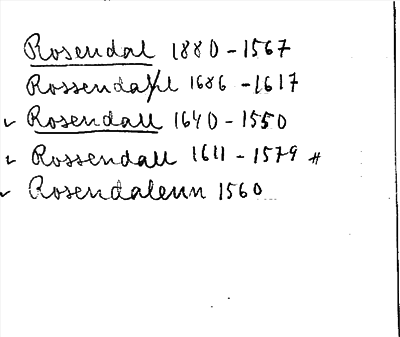 Rosendal 1880-1567
Rossendahl 1686-1617
✓ Rosendall 1640-1550
✓ Rossendall 1611-1579 #
✓ Rosendalenn 1560